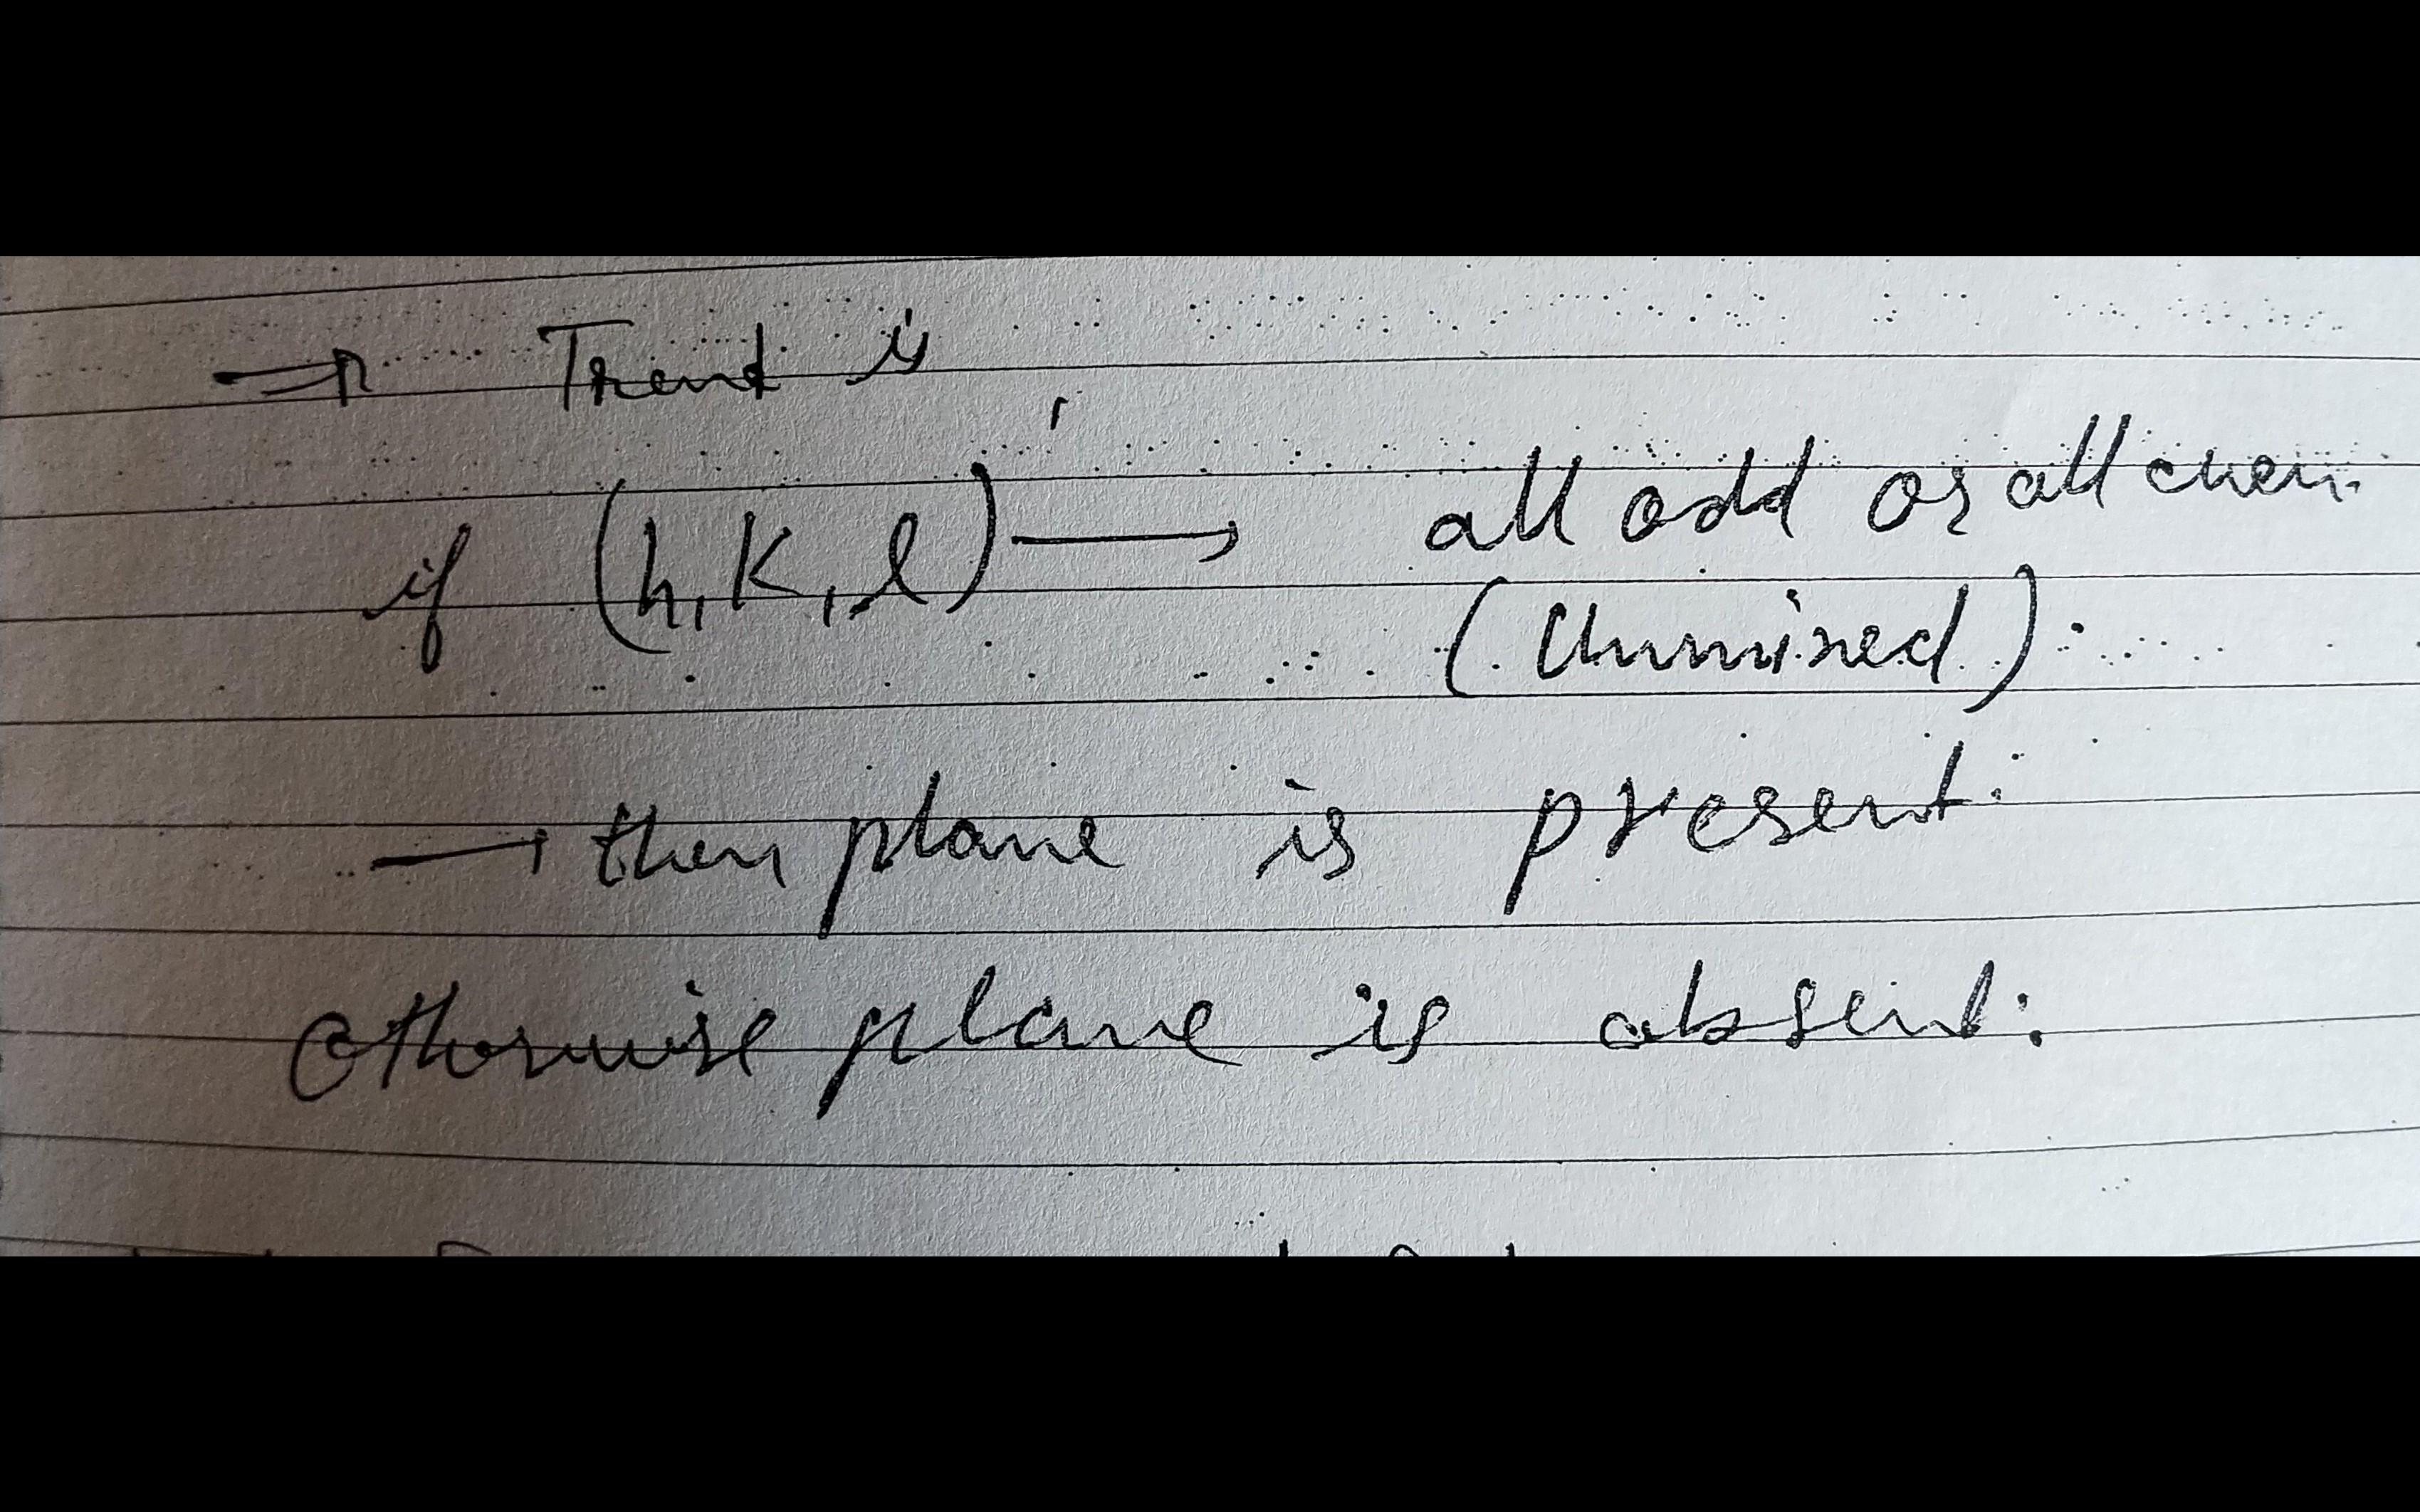 ⇒ Trend is
if (h, K, l) → all odd or all even.
(Unmixed).
→ then plane is present.
Otherwise plane is absent.